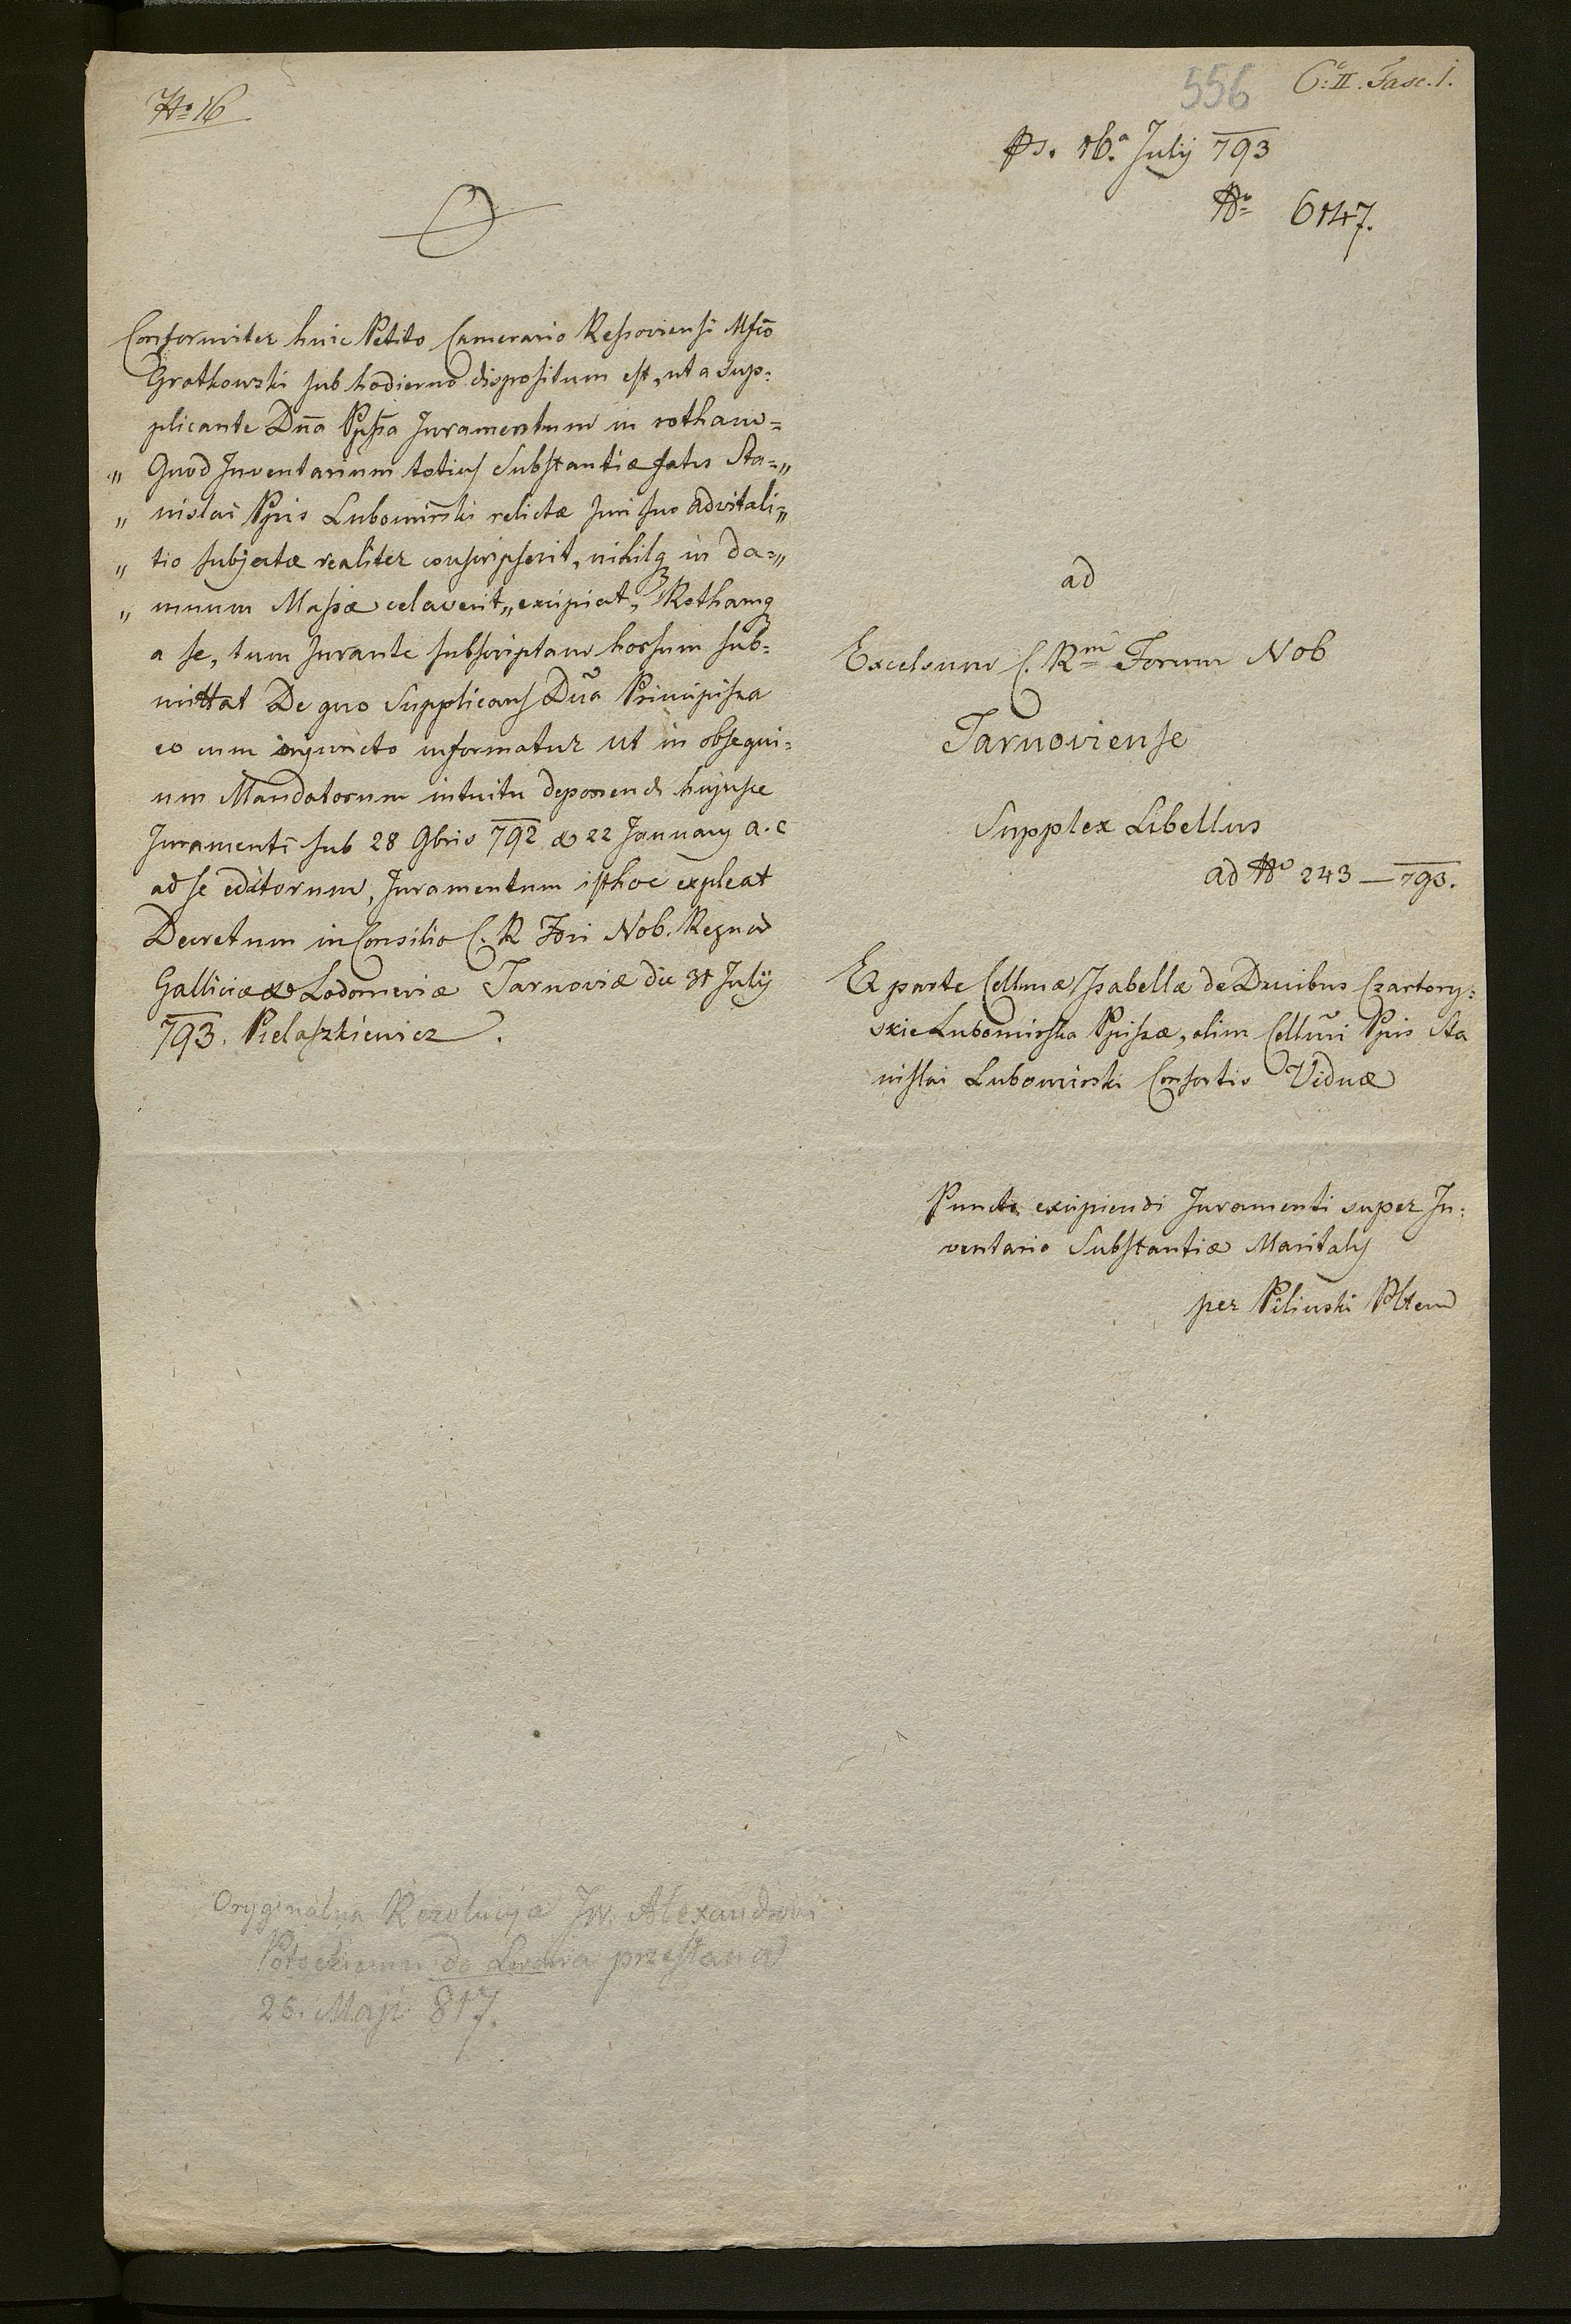 No 16
556
C: II. Fasc. 1.
ps. 16.a July 793
No 6147.
Conformiter huic Petito Camerario Ressoviensi Mfco
Grotkowski sub hodierno dispositum est, ut a sup=
plicante Dna Ppssa Juramentum in rotham=
„ Quod Inventarium totius Substantiæ fatis Sta=„
„ nislai Ppis Lubomirski relictæ Juri suo advitali=„
„ tio subjectæ realiter conscripserit, nihilq in da=„
„ mnum Massæ celaverit„ excipiat, Rothamq
a se, tum Jurante subscriptam horsum sub=
mittat De quo Supplicans Dna Principissa
eo cum injuncto informatur ut in obsequi=
um Mandatorum intuitu deponendi hujusce
Juramenti sub 28 9bris 792 & 22 January a. c
ad se editorum, Juramentum isthoc expleat
Decretum in Consilio C. R Fori Nob. Regnor
Galliciæ & Lodomeriæ Tarnoviæ die 31 July
793. Pielaszkiewicz.
ad
Excelsum C. Rm Forum Nob
Tarnoviense
Supplex Libellus
ad No 243 — 793.
Ex parte Cellmæ Isabellæ de Ducibus Czartory=
skie Lubomirska Ppissæ, olim Cellmi Ppis Sta
nislai Lubomirski Consortis Viduæ
Puncto excipiendi Juramenti super In=
ventario Substantiæ Maritalis
per Pilinski Pltem
Oryginalna Rezolucya Jw. Alexandrowi
Potockiemu do Lwowa przesłana
26. Maji 817.